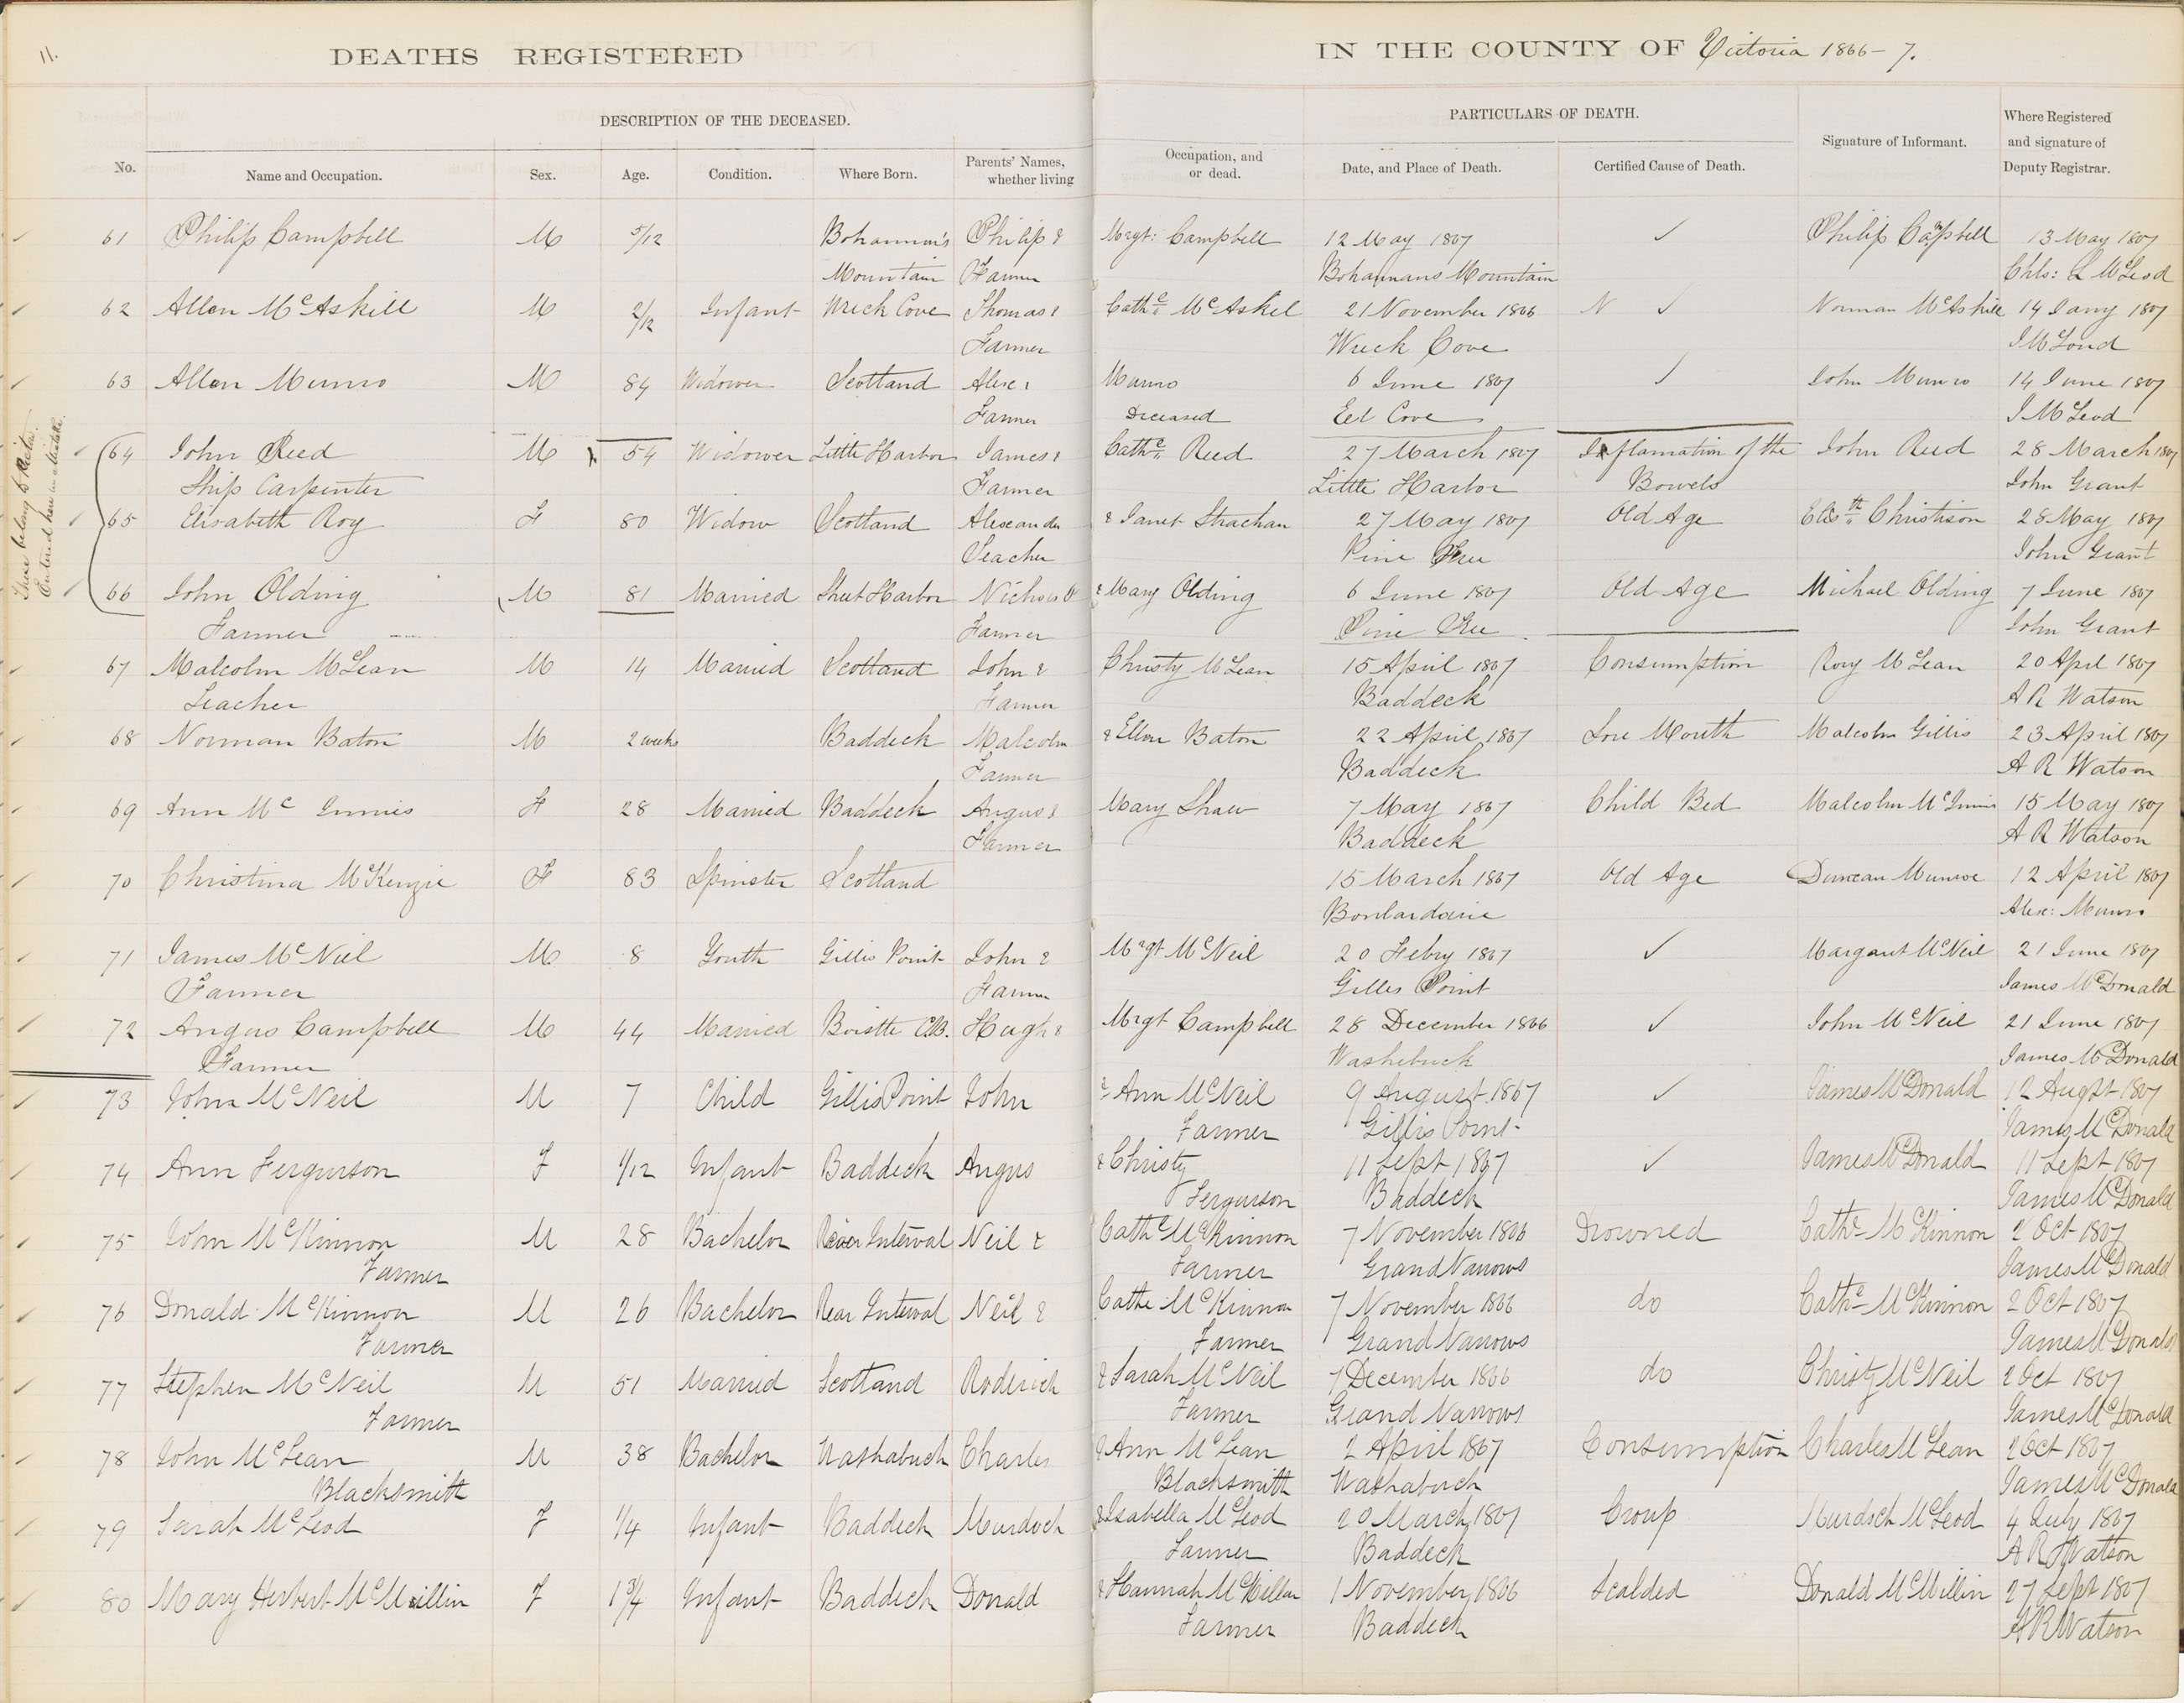 11.
DEATHS REGISTERED IN THE COUNTY OF Victoria 1866-7.
DESCRIPTION OF THE DECEASED. PARTICULARS OF DEATH.
No. Name and Occupation. Sex. Age. Condition. Where Born. Parents' Names, whether living Occupation, and or dead. Date, and Place of Death. Certified Cause of Death. Signature of Informant. Where Registered and signature of Deputy Registrar.
These belong to Pictou. Entered here in mistake.
61 Philip Campbell M 5/12 Bohannan's Philip & Mrgt: Campbell 12 May 1867 ✓ Philip Campbell 13 May 1867
Mountain Farmer Bohannans Mountain Chls: L McLeod
62 Allan McAskill M 2/12 Infant Wreck Cove Thomas & Cathe McAskel 21 November 1866 N ✓ Norman McAskill 14 Jany 1867
Farmer Wreck Cove J McLoud
63 Allan Munro M 84 Widower Scotland Alex & Munro 6 June 1867 ✓ John Munro 14 June 1867
Farmer Deceased Eel Cove J McLeod
64 John Reed M 54 Widower Little Harbor James & Cathe Reed 27 March 1867 Inflamation of the John Reed 28 March 1867
Ship Carpenter Farmer Little Harbor Bowels John Grant
65 Elisabeth Roy F 80 Widow Scotland Alexander & Janet Strachan 27 May 1867 Old Age Elisth Christison 28 May 1867
Teacher Pine Tree John Grant
66 John Olding M 81 Married Sheet Harbor Nicholas & Mary Olding 6 June 1867 Old Age Michael Olding 7 June 1867
Farmer Farmer Pine Tree John Grant
67 Malcolm McLean M 14 Married Scotland John & Christy McLean 15 April 1867 Consumption Rory McLean 20 Aprl 1867
Teacher Farmer Baddeck A R Watson
68 Norman Baton M 2 weeks Baddeck Malcolm & Ellen Baton 22 April 1867 Sore Mouth Malcolm Gillis 23 April 1867
Farmer Baddeck A R Watson
69 Ann Mc Innnis F 28 Married Baddeck Angus & Mary Shaw 7 May 1867 Child Bed Malcolm McInnis 15 May 1867
Farmer Baddeck A R Watson
70 Christina McKenzie F 83 Spinster Scotland 15 March 1867 Old Age Duncan Munroe 12 April 1867
Boulardarie Alex: Munro
71 James McNiel M 8 Youth Gillis Point John & Mrgt McNeil 20 Febry 1867 ✓ Margaret McNeil 21 June 1867
Farmer Farmer Gilles Point James McDonald
72 Angus Campbell M 44 Married CB. Hugh & Mrgt Campbell 28 December 1866 ✓ John McNeil 21 June 1867
Farmer Washebuck James McDonald
73 John McNeil M 7 Child Gillis Point John & Ann McNeil 9 August 1867 ✓ James McDonald 12 Augst 1867
Farmer Gillis Point James McDonald
74 Ann Fergurson F 1/12 Infant Baddeck Angus & Christy 11 Sept 1867 ✓ James McDonald 11 Sept 1867
Fergurson Baddeck James McDonald
75 John McKinnon M 28 Bachelor Rear Interval Neil & Cathe McKinnon 7 November 1866 Drowned Cathe McKinnon 2 Oct 1867
Farmer Farmer Grand Narrows James McDonald
76 Donald McKinnon M 26 Bachelor Rear Interval Neil & Cathe McKinnon 7 November 1866 do Cathe McKinnon 2 Oct 1867
Farmer Farmer Grand Narrows James McDonald
77 Stephen McNeil M 51 Married Scotland Roderick & Sarah McNeil 7 December 1866 do Christy McNeil 2 Oct 1867
Farmer Farmer Grand Narrows James McDonald
78 John McLean M 38 Bachelor Washabuck Charles & Ann McLean 2 April 1867 Consumption Charles McLean 2 Oct 1867
Blacksmith Blacksmith Washabuck James McDonald
79 Sarah McLeod F 1/4 Infant Baddeck Murdoch & Isabella McLeod 20 March 1867 Croup Murdoch McLeod 4 July 1867
Farmer Baddeck A R Watson
80 Mary Herbert McMillin F 1 3/4 Infant Baddeck Donald & Hannah McMillan 1 November 1866 Scalded Donald McMillin 27 Sept 1867
Farmer Baddeck A R Watson